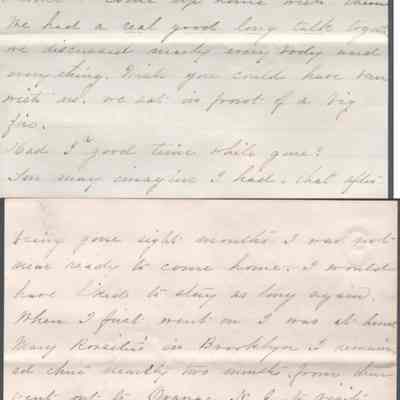 come up home with them
We had a real good long talk togeth
we discussed nearly every body and
everything. Wish you could have been
with us. we sat in front of a big
fire.
Had I a good time while gone?
You may imagine I had. that after
being gone eight months I was not
near ready to come home. I would
have liked to stay as long again.
When I first went on I was at Aunt
Mary in Brooklyn I remain
ed there nearly two months from there
went out to Orange N. J. to visit